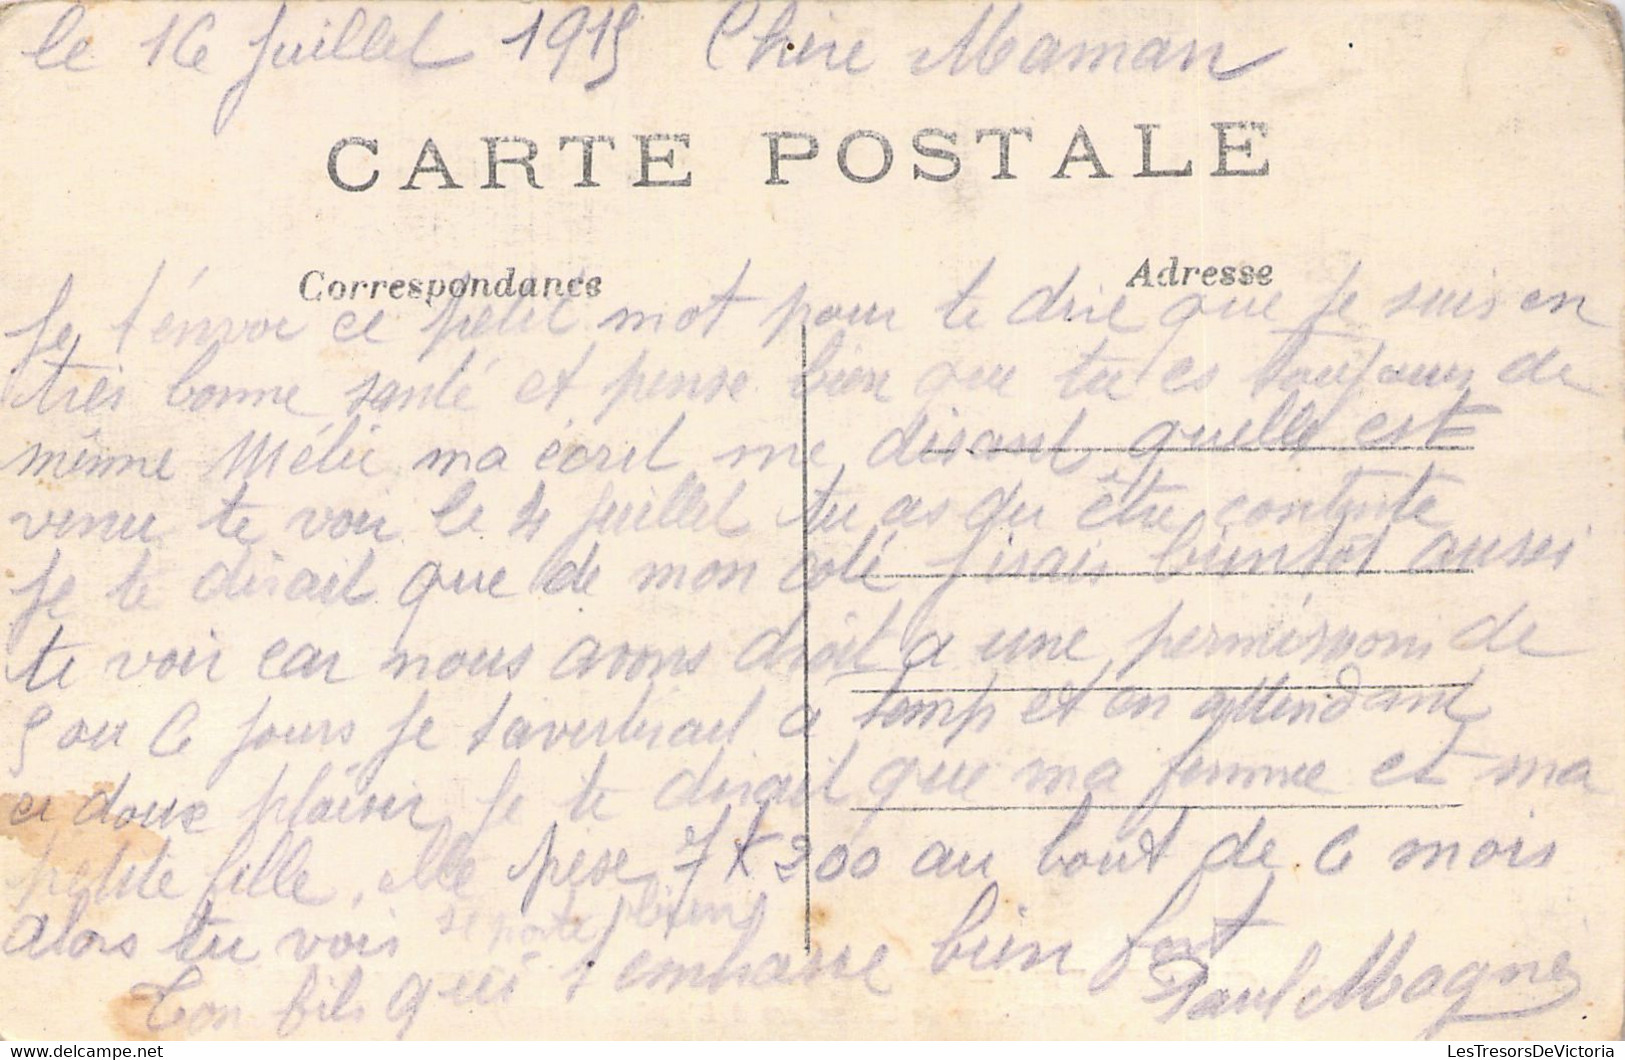 le 16 Juillet 1915 Chère Maman
CARTE POSTALE
Correspondance
Adresse
Je t'envoi ce petit mot pour te drie que Je suis en
très bonne santé et pense bien que tu es toujours de
même Mélie ma écrit me disant quelle est
venu te voir le 4 Juillet tu as du être contente
Je te dirait que de mon coté J'irais bientot aussi
te voir car nous avons droit a une permission de
5 ou 6 jours Je t'avertirait a temp et en attendant
ce doux plaisir, Je te dirait que ma femme et ma
petite fille, elle pese 7 K 300 au bout de 6 mois
se porte bien
alors tu vois
Ton fils qui t'embrasse bien fort
Paul Magne
LesTresorsDeVictoria